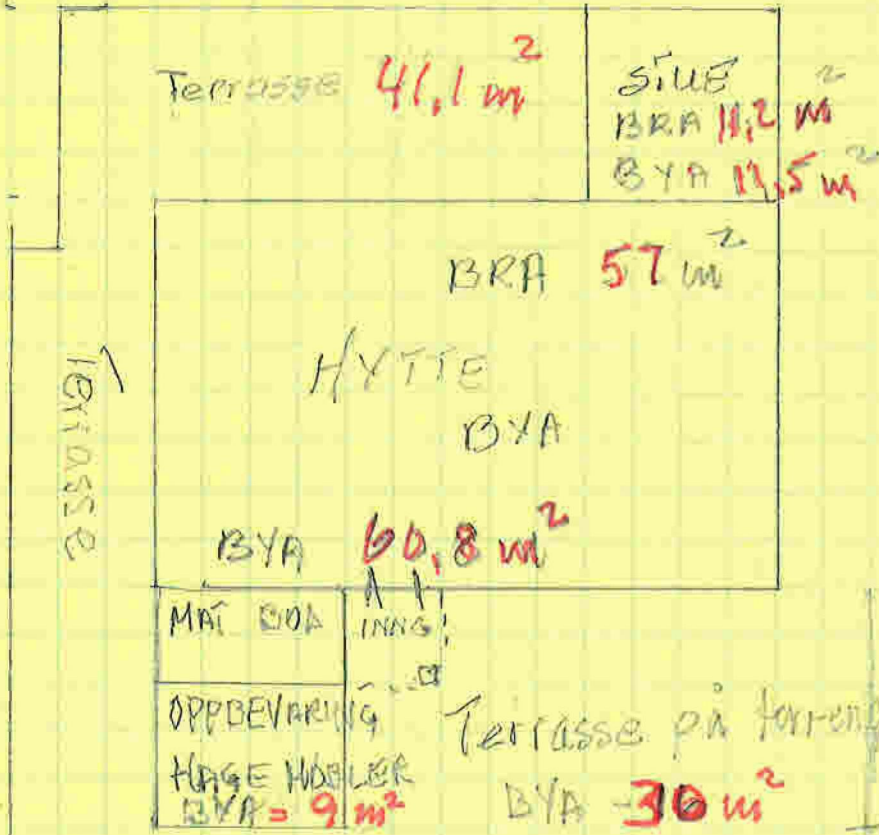 Terrasse 41,1 m²
STUE
BRA 11,2 m²
BYA 11,5 m²
BRA 57 m²
HYTTE
BYA
Terrasse
BYA 60,8 m²
MAT BOA
INNG
OPPBEVARING
HAGE MØBLER
BYA = 9 m²
Terrasse på terreng
BYA m²